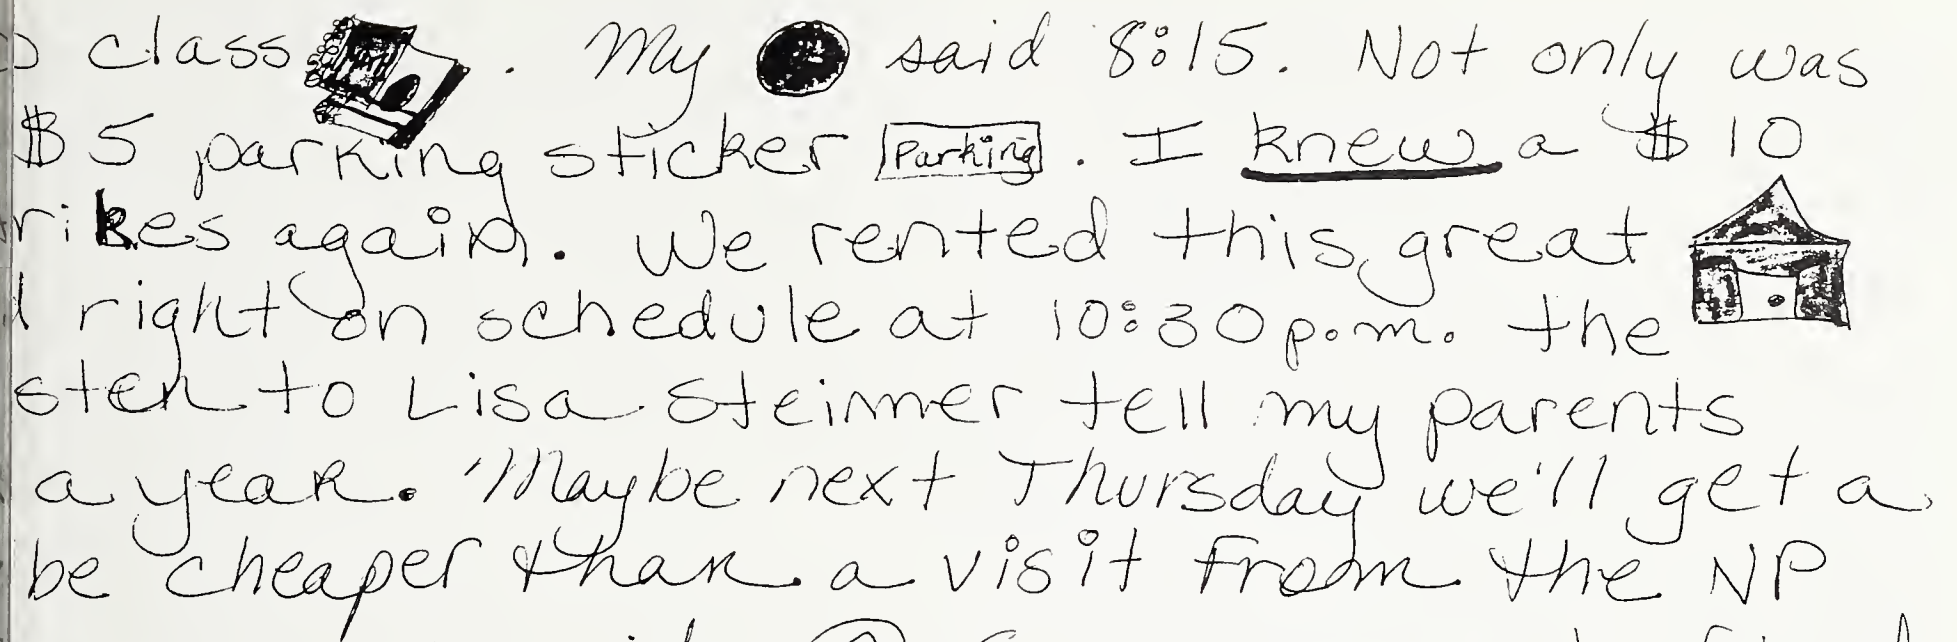 class . My said 8:15. Not only was
$5 parking sticker Parking . I knew a $10
rikes again. We rented this great
right on schedule at 10:30 p.m. the
sten to Lisa Steinmer tell my parents
a year. Maybe next Thursday we'll get a
be cheaper than a visit from the NP